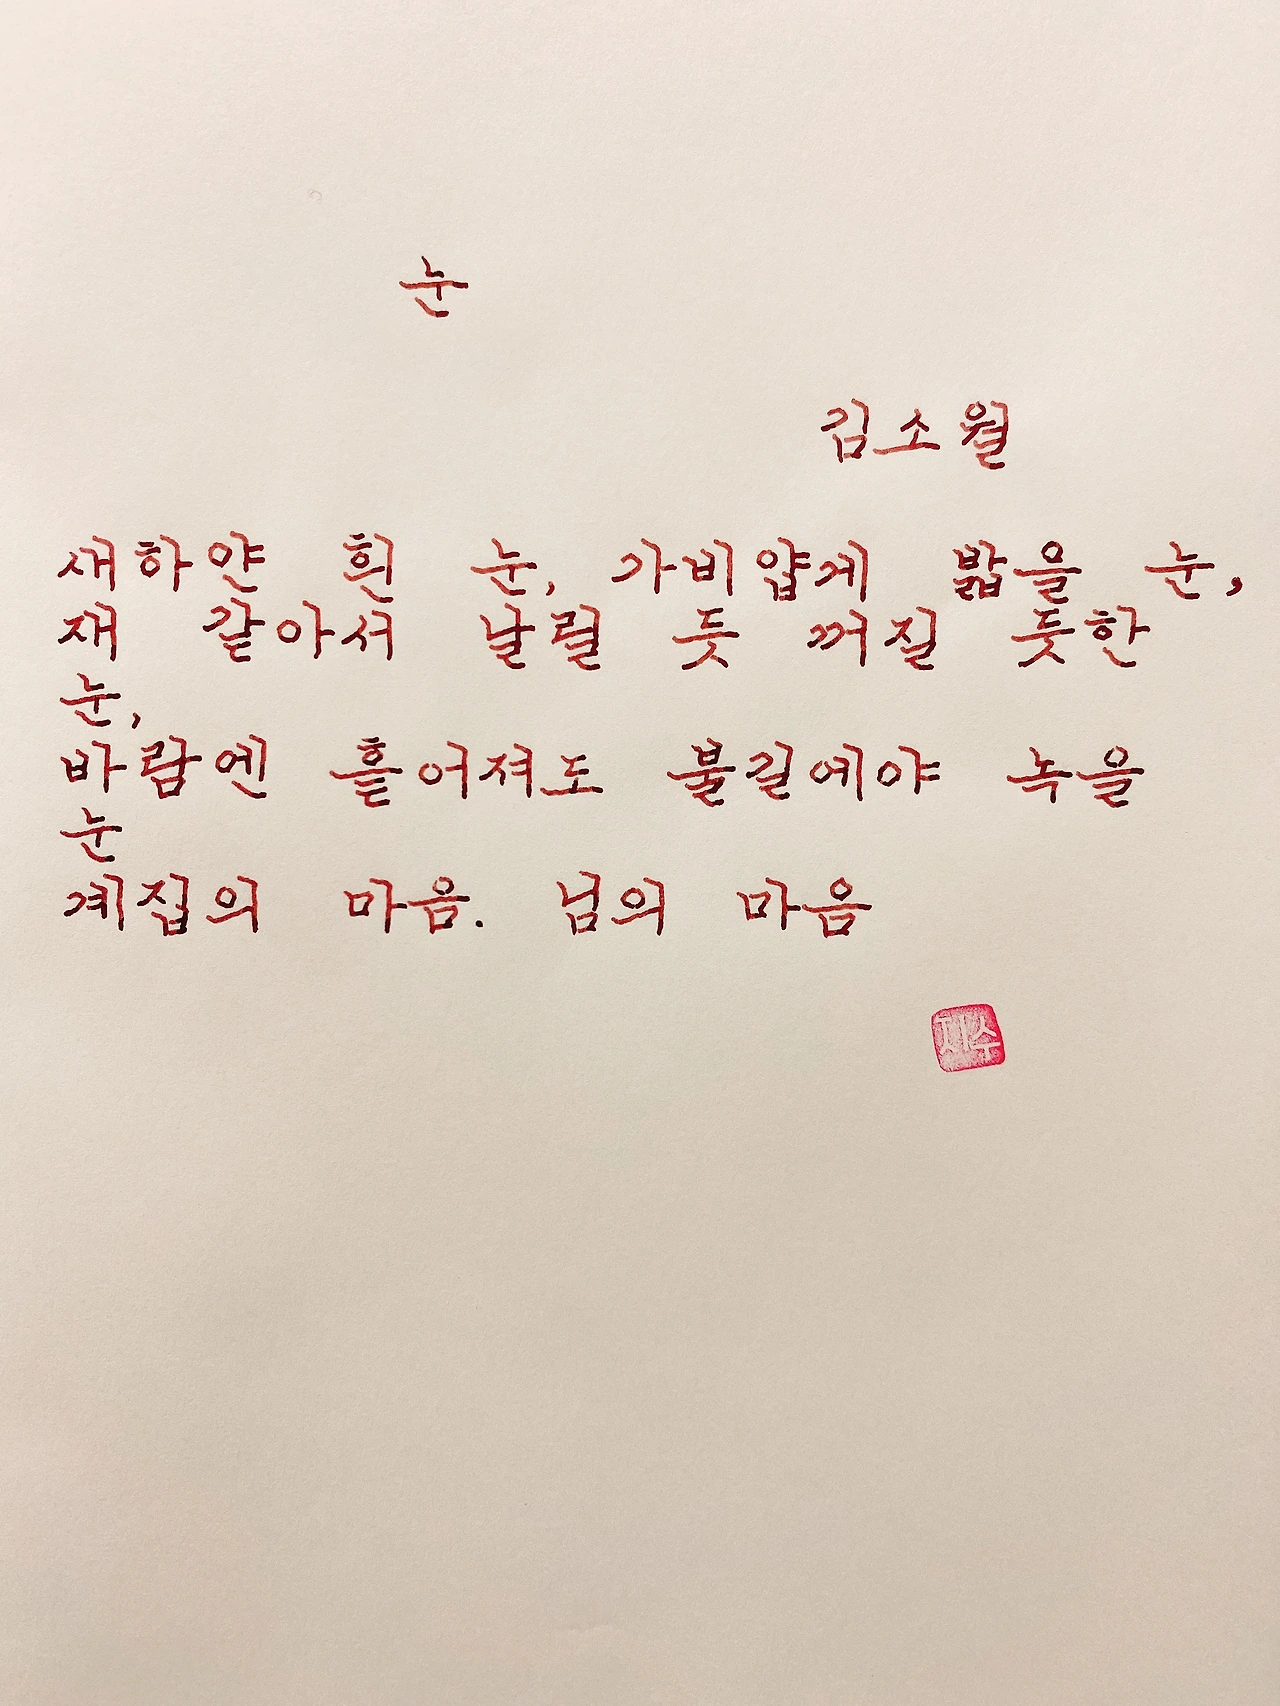 눈
김소월
새하얀 흰 눈, 가비얍게 밟을 눈,
재 같아서 날릴 듯 꺼질 듯한
눈,
바람엔 흩어져도 불길에야 녹을
눈
계집의 마음. 님의 마음
자수